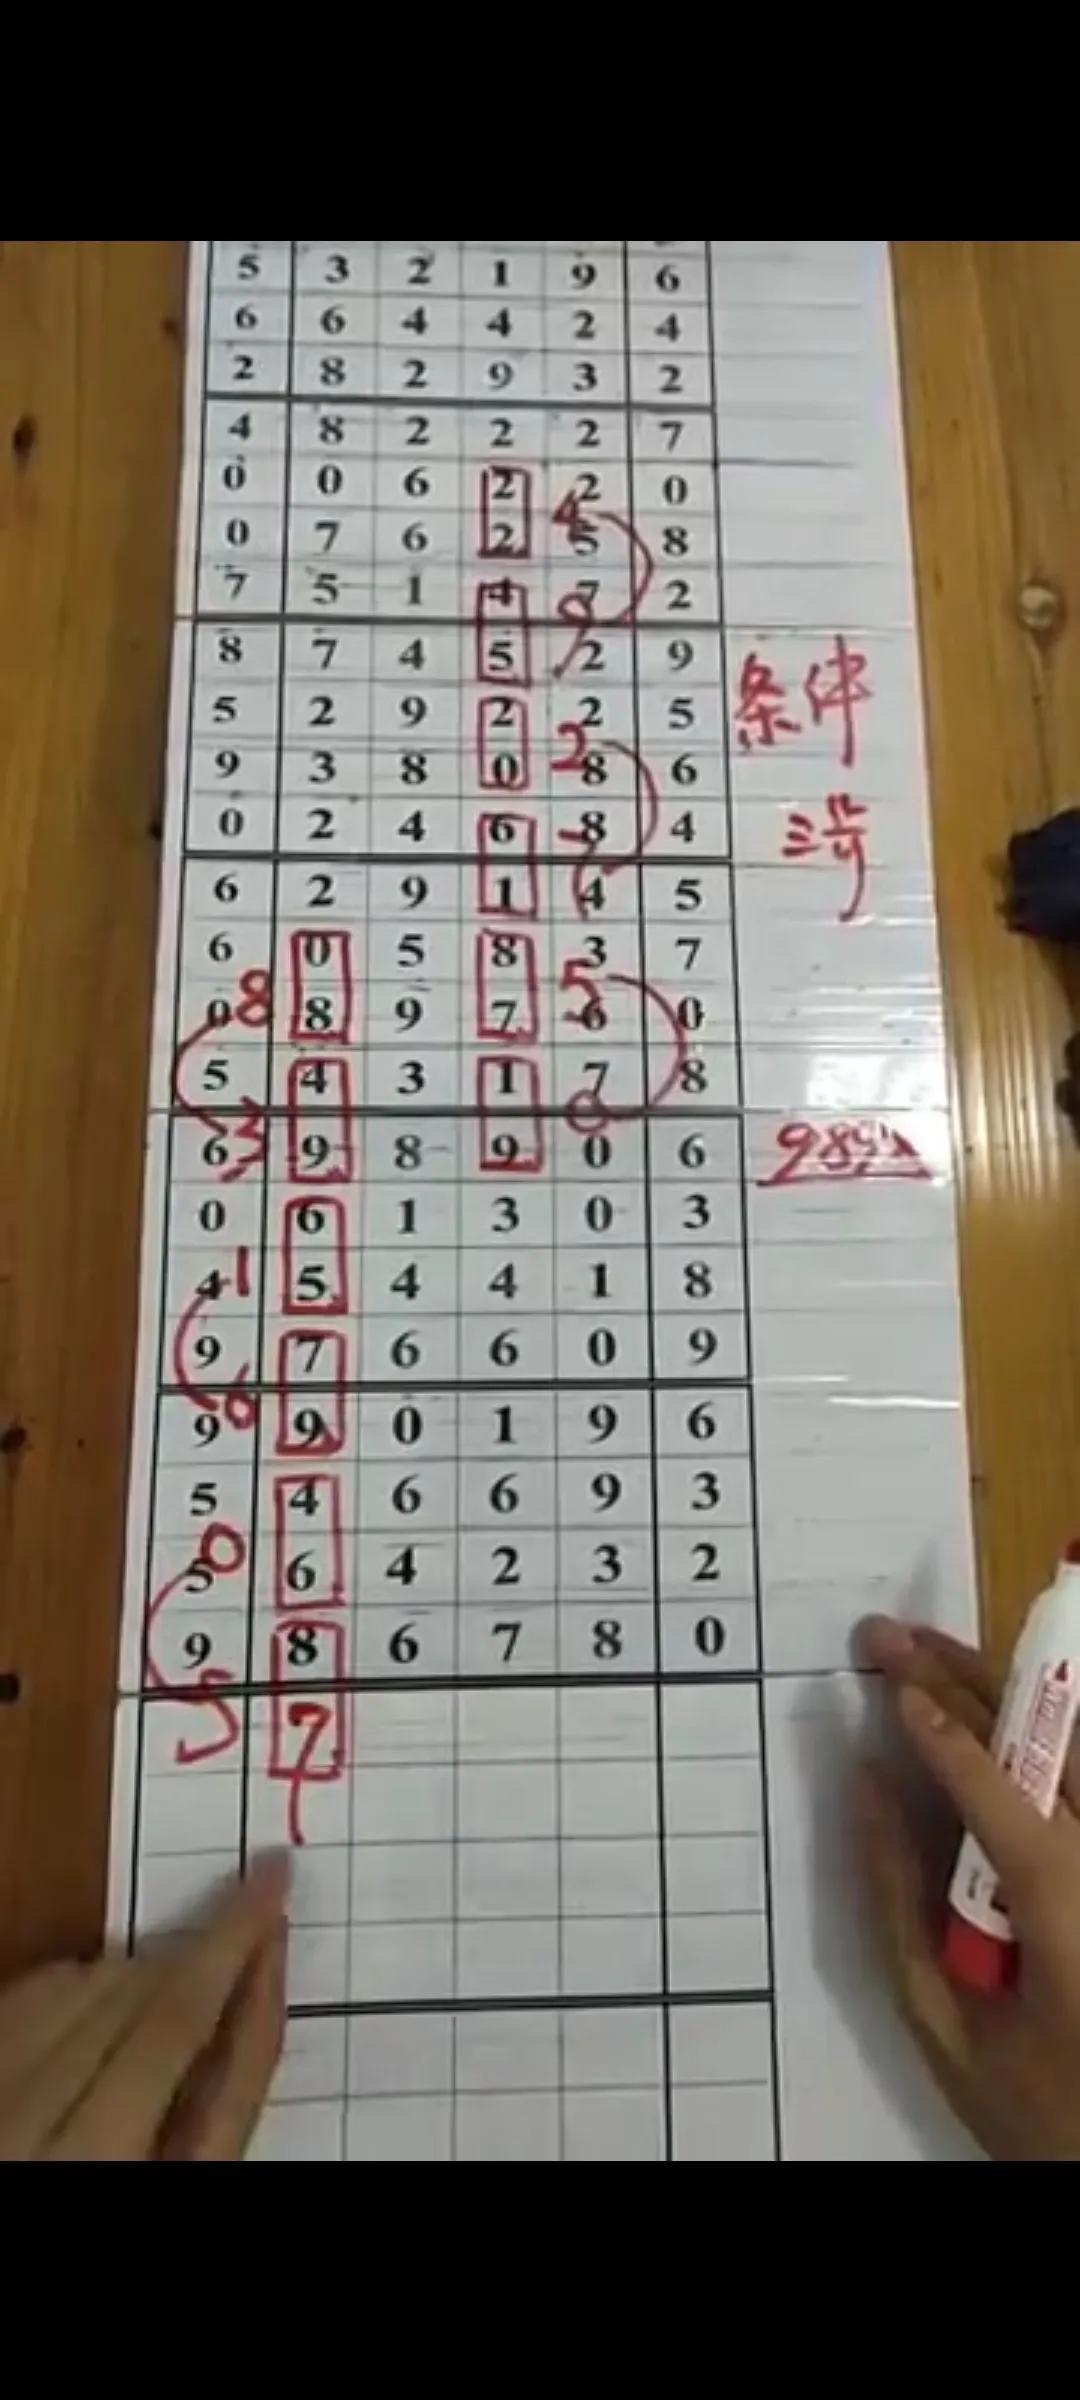 5 3 2 1 9 6
6 6 4 4 2 4
2 8 2 9 3 2
4 8 2 2 2 7
0 0 6 2 2 0
4
0 7 6 2 5 8
7 5 1 4 7 2
9
8 7 4 5 2 9
条件
5 2 9 2 2 5
2
9 3 8 0 8 6
0 2 4 6 8 4
7
6 2 9 1 4 5
6 0 5 8 3 7
8 5
0 8 9 7 6 0
5 4 3 1 7 8
3 0
6 9 8 9 0 6
0 6 1 3 0 3
1
4 5 4 4 1 8
9 7 6 6 0 9
6
9 9 0 1 9 6
5 4 6 6 9 3
0
5 6 4 2 3 2
9 8 6 7 8 0
5 7